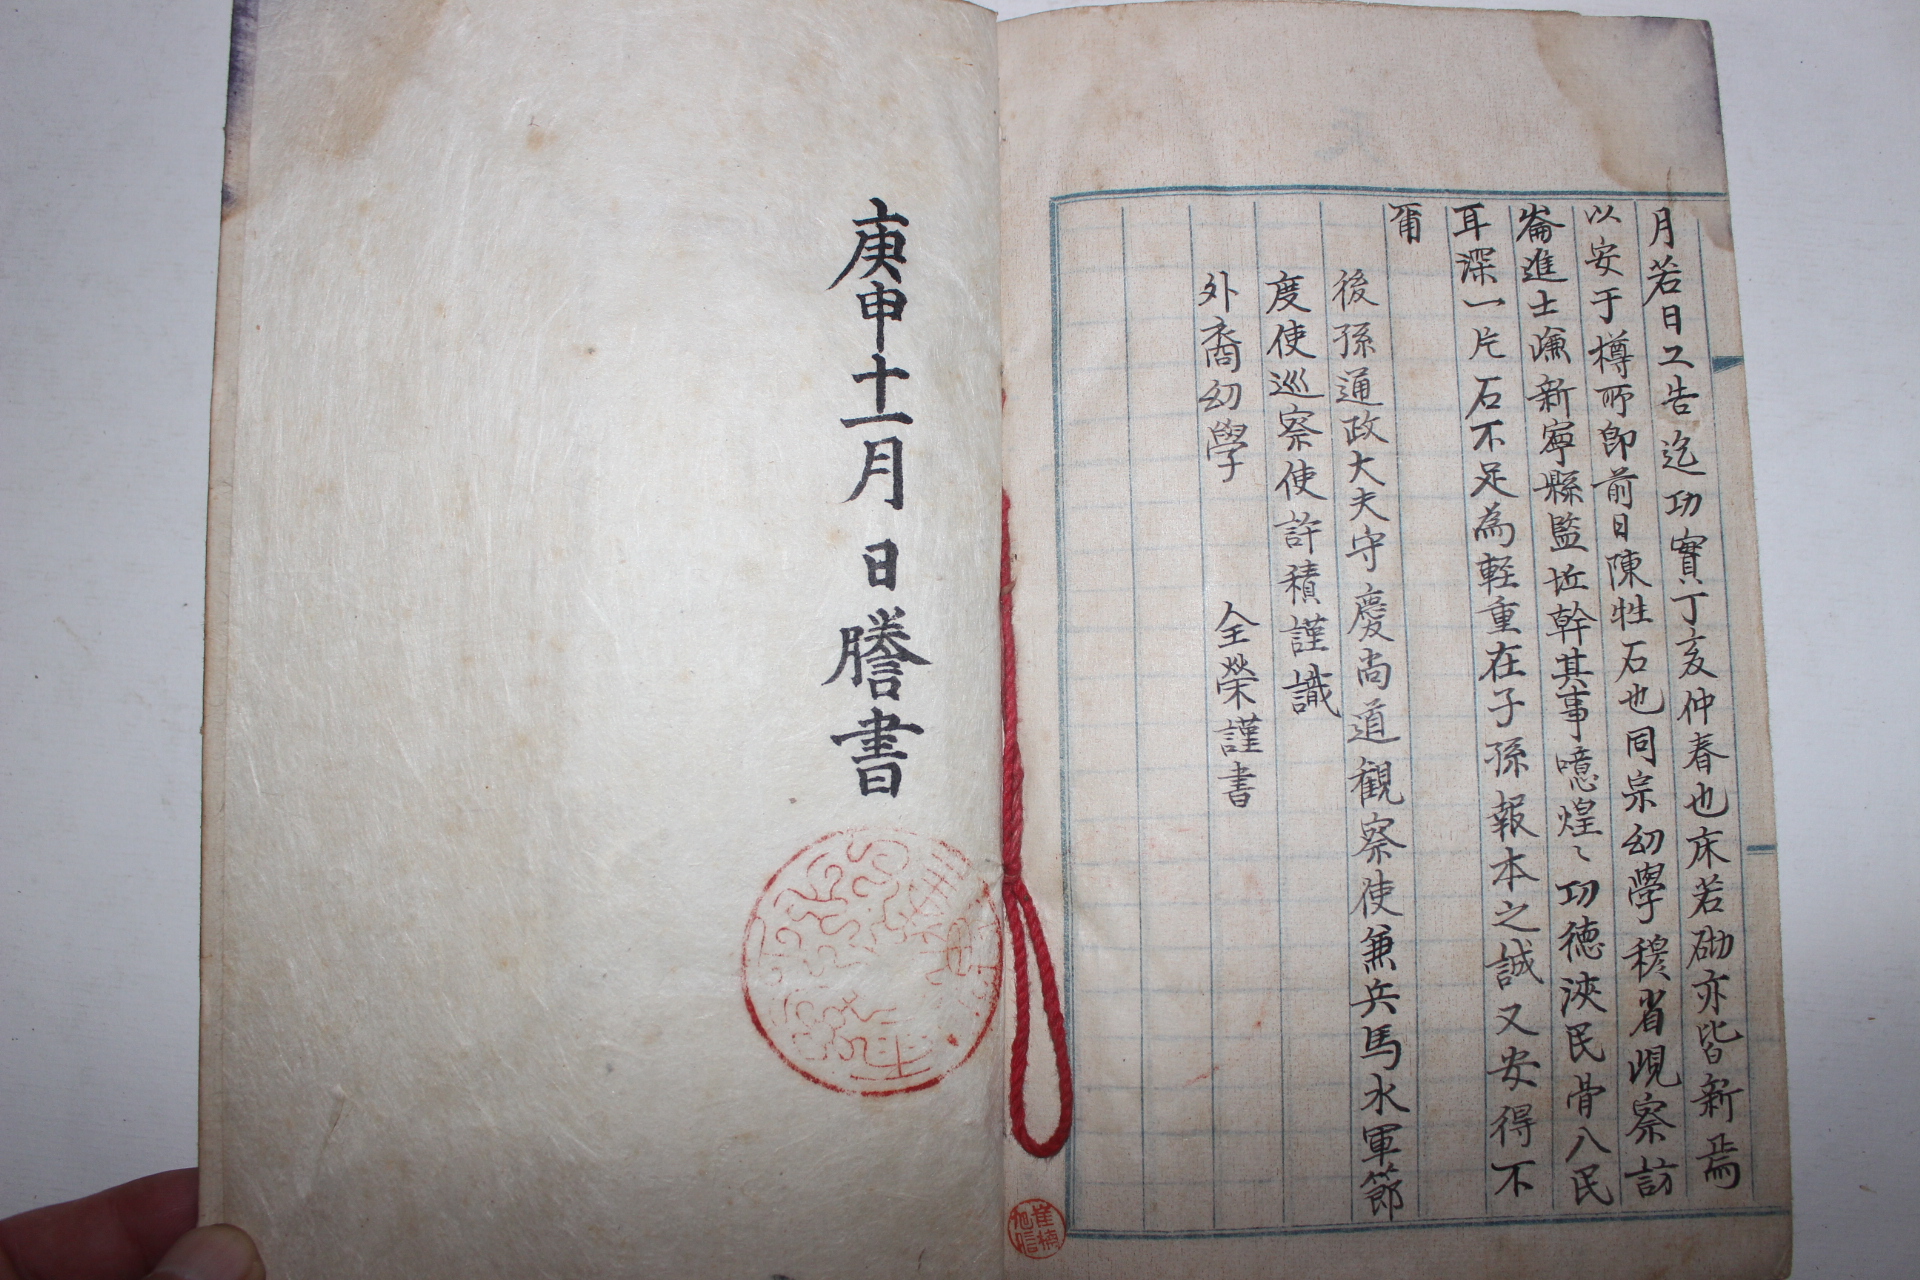 月若日工告迄功實丁亥仲春也床若砌亦皆新焉
以安于樽所卽前日陳牲石也同宗幼學穆省峴察訪
崙進士濂新寧縣監垁幹其事噫煌〻功德浹民骨入民
耳深一片石不足為輕重在子孫報本之誠又安得不
甭
後孫通政大夫守慶尚道觀察使兼兵馬水軍節
度使巡察使許積謹識
外裔幼學 全榮謹書
庚申十一月 日謄書